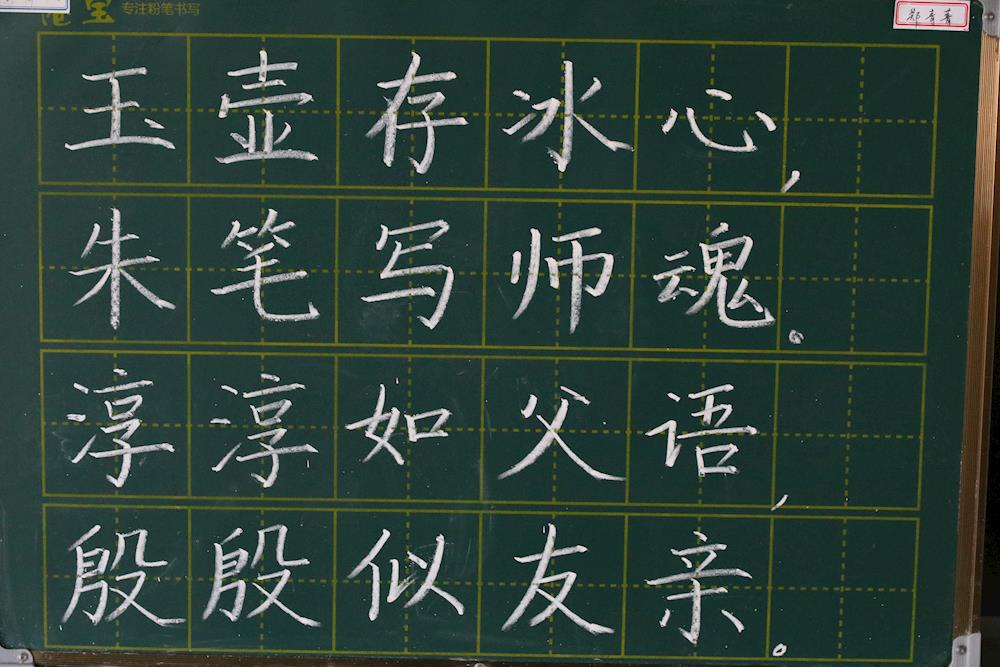 专注粉笔书写
郑青青
玉壶存冰心，
朱笔写师魂。
淳淳如父语，
殷殷似友亲。